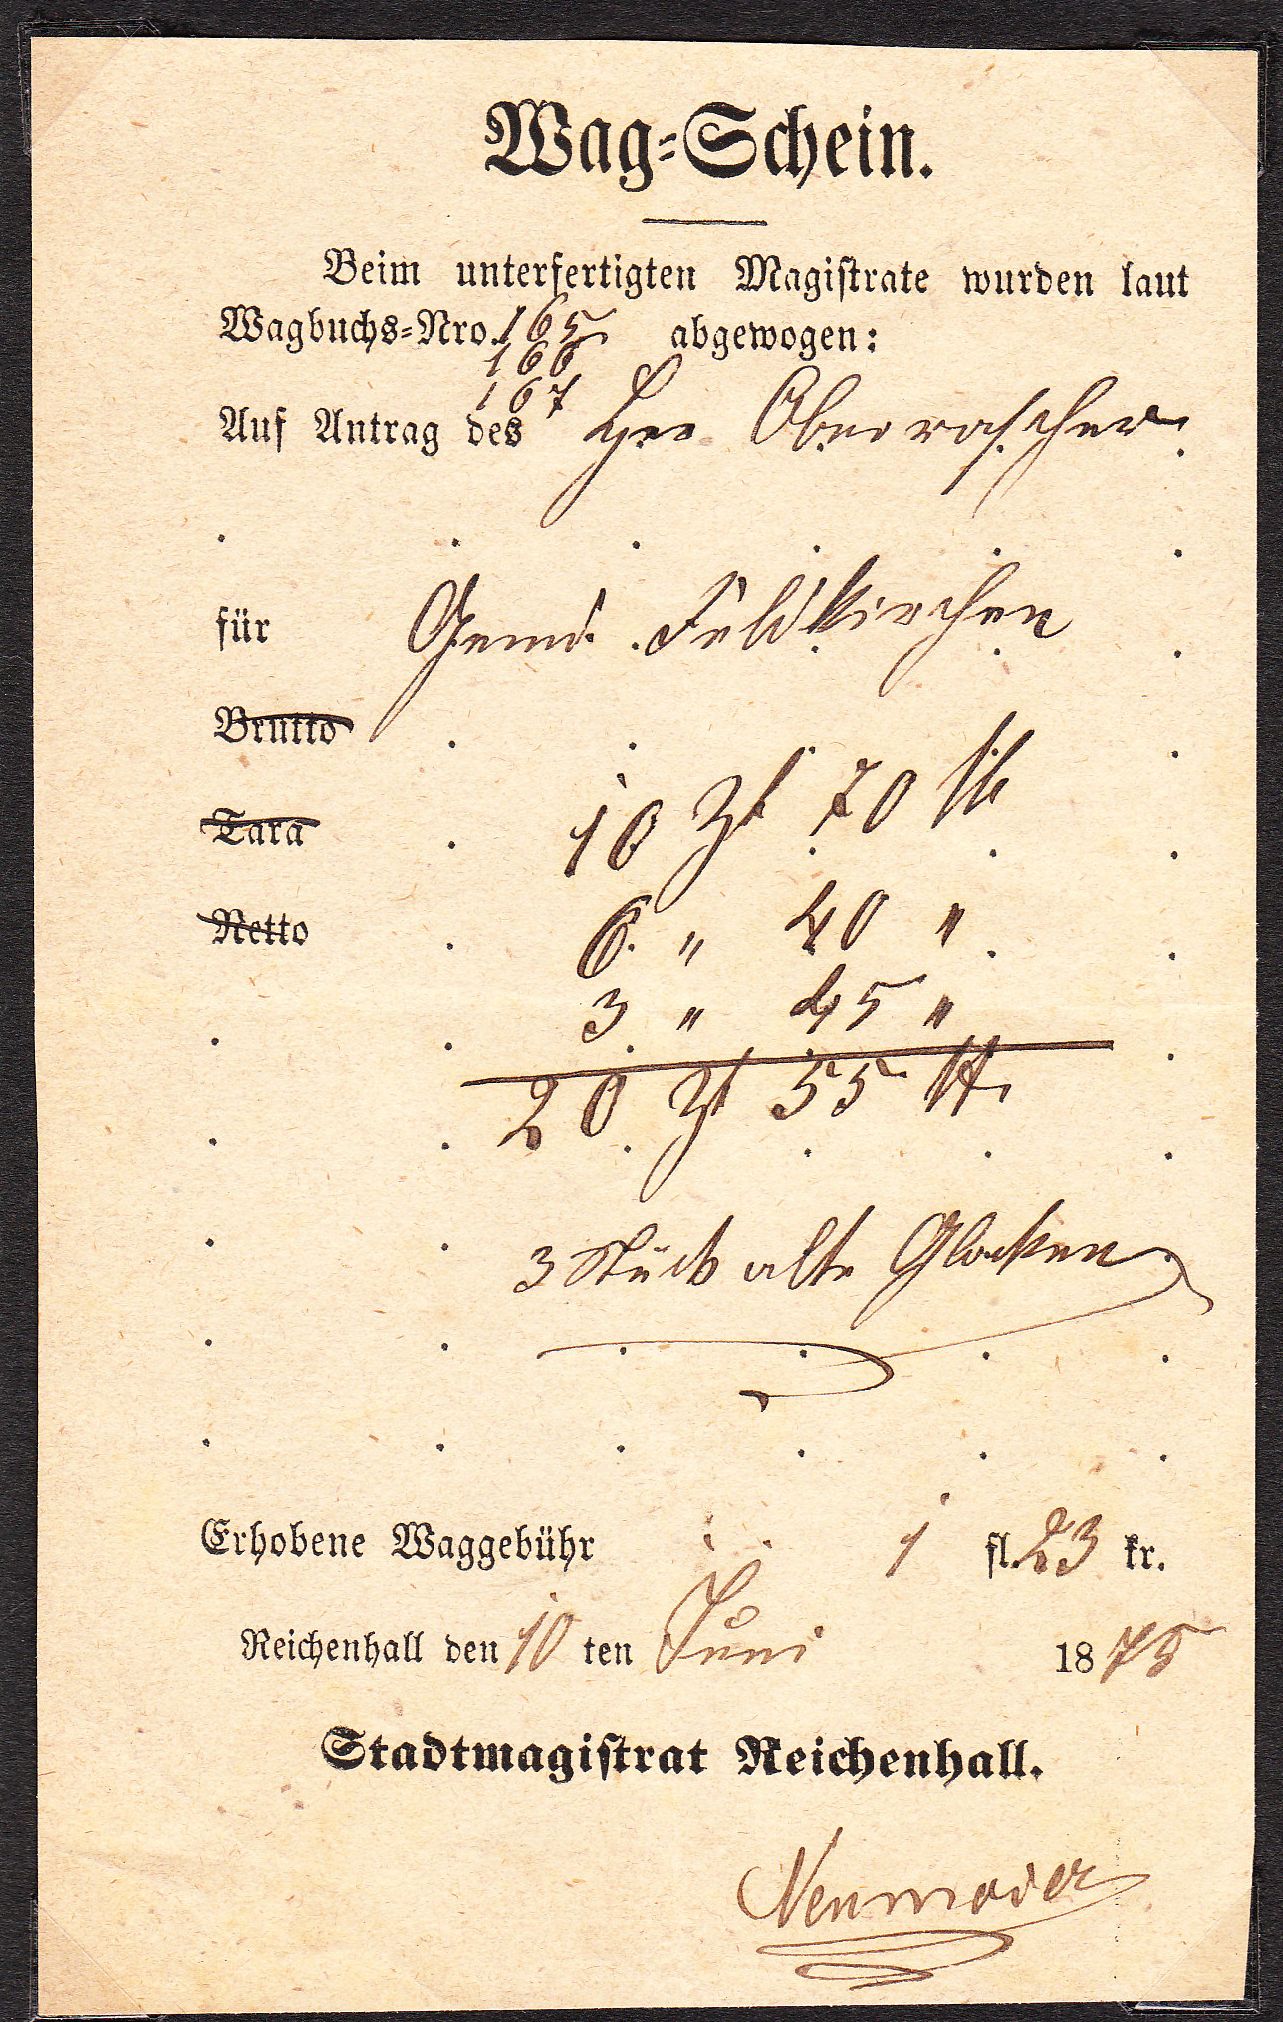 Wag-Schein.
Beim unterfertigten Magistrate wurden laut
Wagbuchs-Nro. 165 abgewogen:
166
167
Auf Antrag des Herr Oberascher
für Gemd. Feldkirchen
Brutto
Tara 10 Zt 70 ℔
Netto 6 " 40 "
3 " 45 "
20 Zt 55 ℔
3 Stück alte Glocken
Erhobene Waggebühr 1 fl. 23 kr.
Reichenhall den 10 ten Juni 1875
Stadtmagistrat Reichenhall.